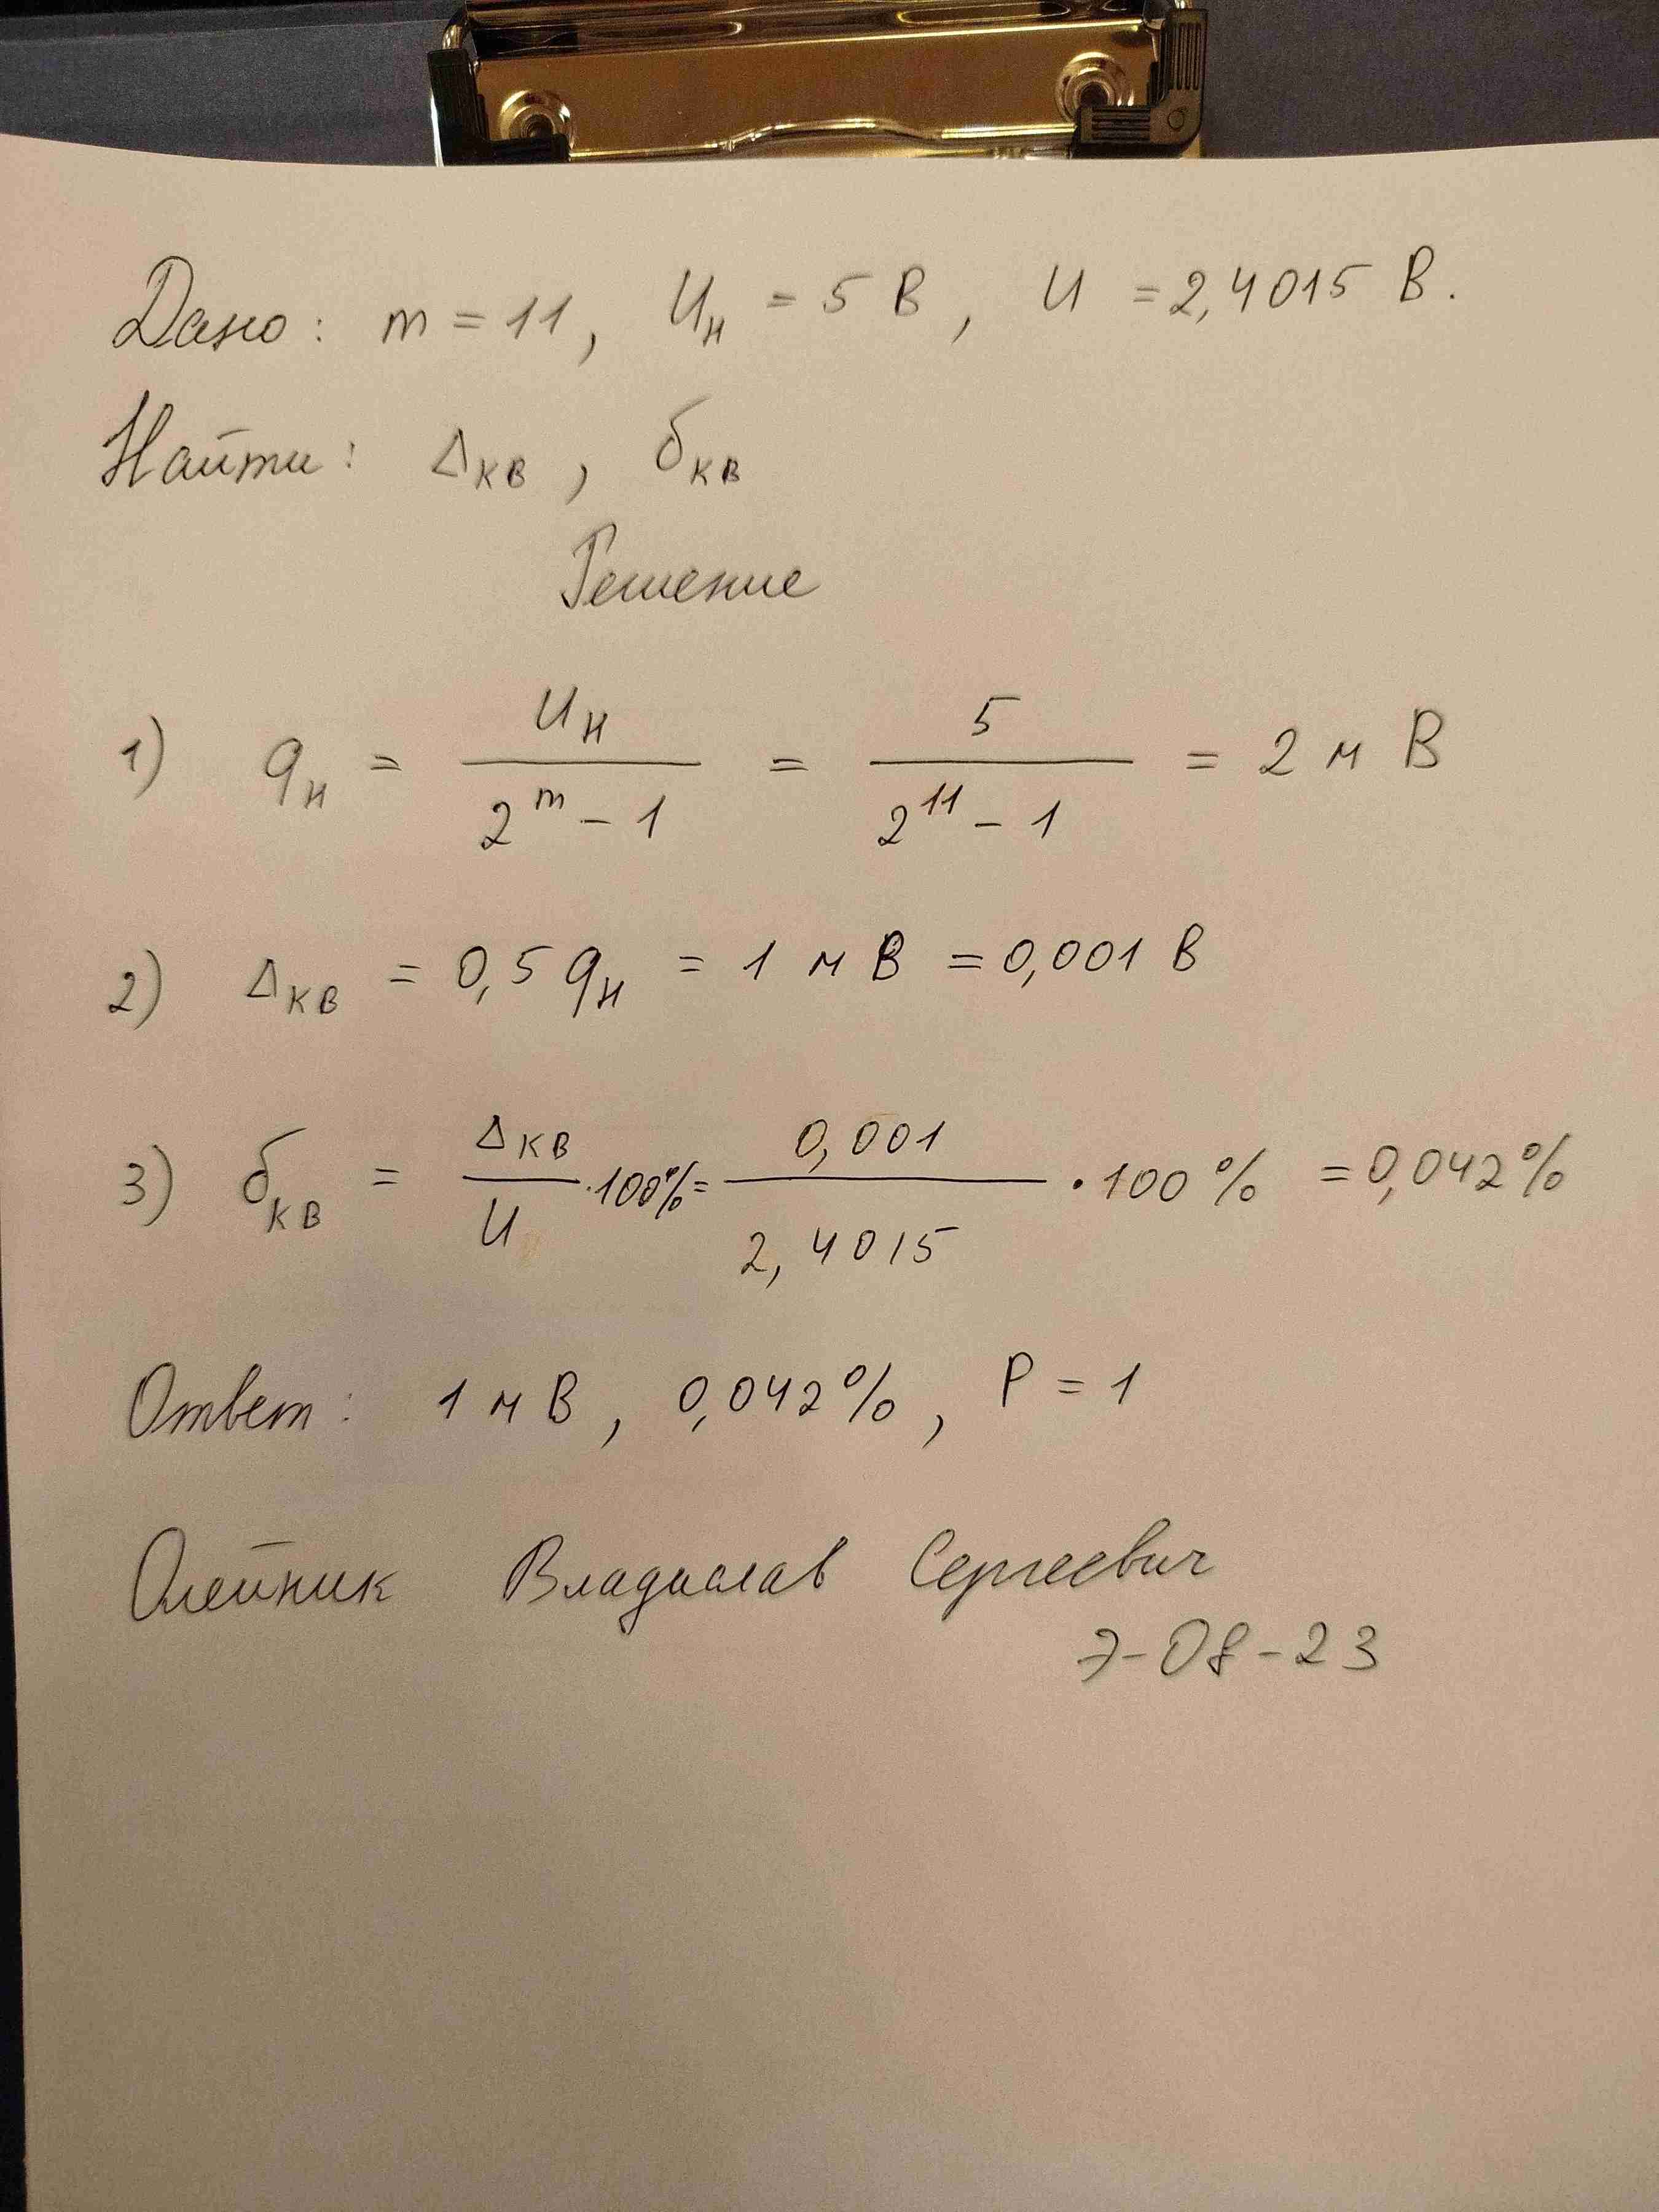 Дано: m = 11, Uн = 5 В, U = 2,4015 В.
Найти: Δкв, δкв
Решение
1) qн = Uн / (2^m - 1) = 5 / (2^11 - 1) = 2 мВ
2) Δкв = 0,5 qн = 1 мВ = 0,001 В
3) δкв = Δкв / U · 100% = 0,001 / 2,4015 · 100% = 0,042%
Ответ: 1 мВ, 0,042%, P = 1
Олейник Владислав Сергеевич
Э-08-23